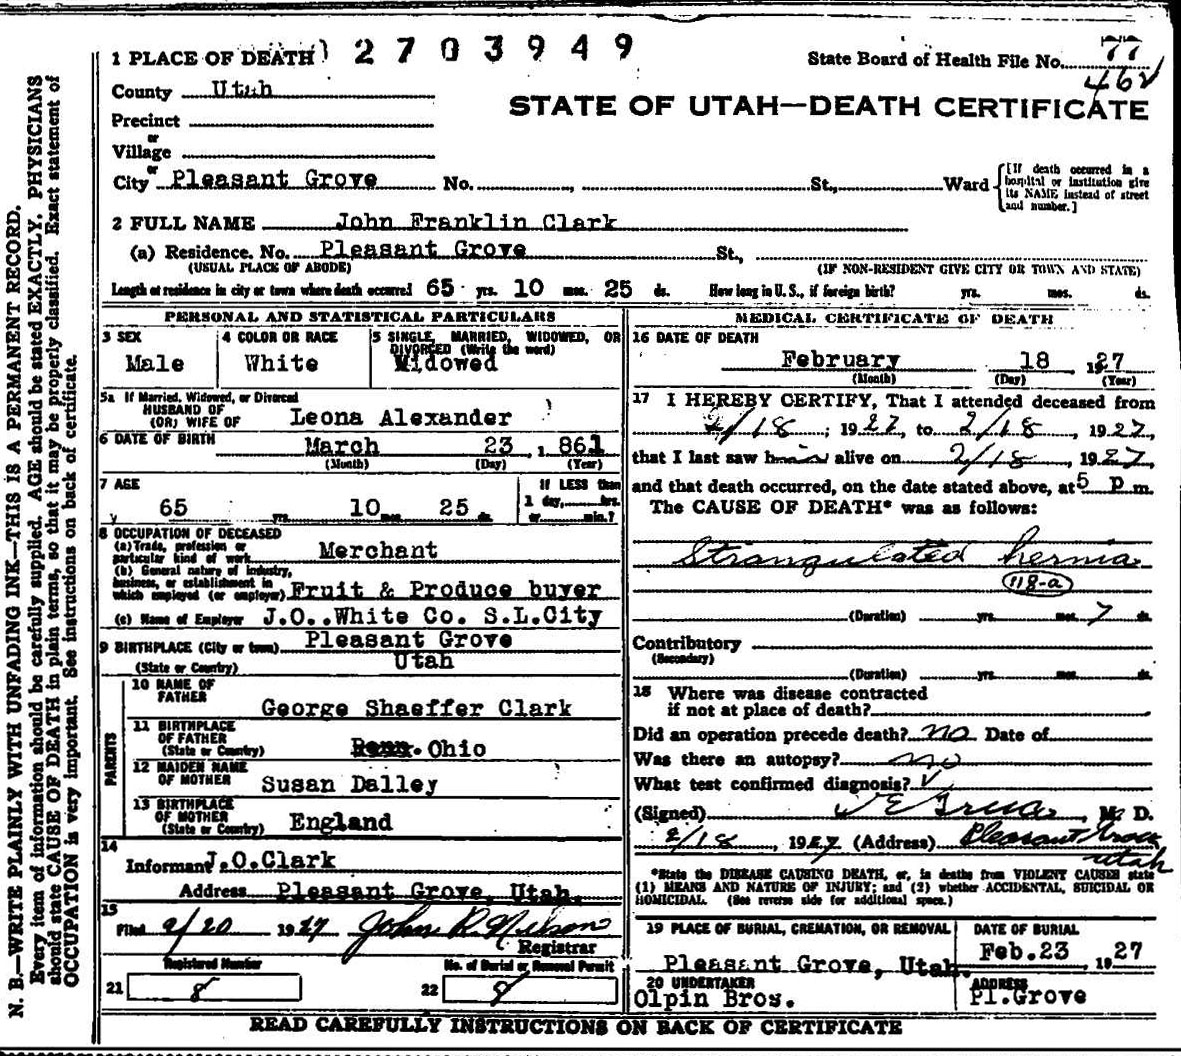 1 PLACE OF DEATH 2 7 0 3 9 4 9 State Board of Health File No. 77
462
County Utah
STATE OF UTAH—DEATH CERTIFICATE
Precinct
or
Village
or
City Pleasant Grove No. , St., Ward
[If death occurred in a hospital or institution give its NAME instead of street and number.]
2 FULL NAME John Franklin Clark
(a) Residence. No. Pleasant Grove St.,
(USUAL PLACE OF ABODE) (IF NON-RESIDENT GIVE CITY OR TOWN AND STATE)
Length of residence in city or town where death occurred 65 yrs. 10 mos. 25 ds. How long in U. S., if foreign birth? yrs. mos. ds.
PERSONAL AND STATISTICAL PARTICULARS
3 SEX
Male
4 COLOR OR RACE
White
5 SINGLE, MARRIED, WIDOWED, OR DIVORCED (Write the word)
Widowed
5a If Married, Widowed, or Divorced
HUSBAND OF
(OR) WIFE OF Leona Alexander
6 DATE OF BIRTH March 23 , 1 861
(Month) (Day) (Year)
7 AGE
65 yrs. 10 25 ds.
If LESS than
1 day, hrs.
or min.?
8 OCCUPATION OF DECEASED
(a) Trade, profession or
particular kind of work Merchant
(b) General nature of industry,
business, or establishment in
which employed (or employer) Fruit & Produce buyer
(c) Name of Employer J.O..White Co. S.L.City
9 BIRTHPLACE (City or town) Pleasant Grove
(State or Country) Utah
PARENTS
10 NAME OF
FATHER George Shaeffer Clark
11 BIRTHPLACE
OF FATHER
(State or Country) Ohio
12 MAIDEN NAME
OF MOTHER Susan Dalley
13 BIRTHPLACE
OF MOTHER
(State or Country) England
14
Informant J.O.Clark
Address Pleasant Grove, Utah.
15
Filed 2/20 1927 John R. Nelson
Registrar
Registered Number
21 8
No. of Burial or Removal Permit
22 8
MEDICAL CERTIFICATE OF DEATH
16 DATE OF DEATH
February 18 , 1927
(Month) (Day) (Year)
17 I HEREBY CERTIFY, That I attended deceased from
2/18 ; 1927, to 2/18 , 1927,
that I last saw him alive on 2/18 , 1927,
and that death occurred, on the date stated above, at 5 p m.
The CAUSE OF DEATH* was as follows:
Strangulated hernia
118-a
(Duration) yrs. mos. 7 ds.
Contributory
(Secondary)
(Duration) yrs. mos. ds.
18 Where was disease contracted
if not at place of death?
Did an operation precede death? no Date of
Was there an autopsy? no
What test confirmed diagnosis?
(Signed) , M. D.
2/18 , 1927 (Address) Pleasant Grove
Utah
*State the DISEASE CAUSING DEATH, or, in deaths from VIOLENT CAUSES state
(1) MEANS AND NATURE OF INJURY; and (2) whether ACCIDENTAL, SUICIDAL OR
HOMICIDAL. (See reverse side for additional space.)
19 PLACE OF BURIAL, CREMATION, OR REMOVAL
Pleasant Grove, Utah.
DATE OF BURIAL
Feb.23 , 1927
20 UNDERTAKER
Olpin Bros.
ADDRESS
Pl.Grove
READ CAREFULLY INSTRUCTIONS ON BACK OF CERTIFICATE
N. B.—WRITE PLAINLY WITH UNFADING INK—THIS IS A PERMANENT RECORD.
Every item of information should be carefully supplied. AGE should be stated EXACTLY. PHYSICIANS
should state CAUSE OF DEATH in plain terms, so that it may be properly classified. Exact statement of
OCCUPATION is very important. See instructions on back of certificate.